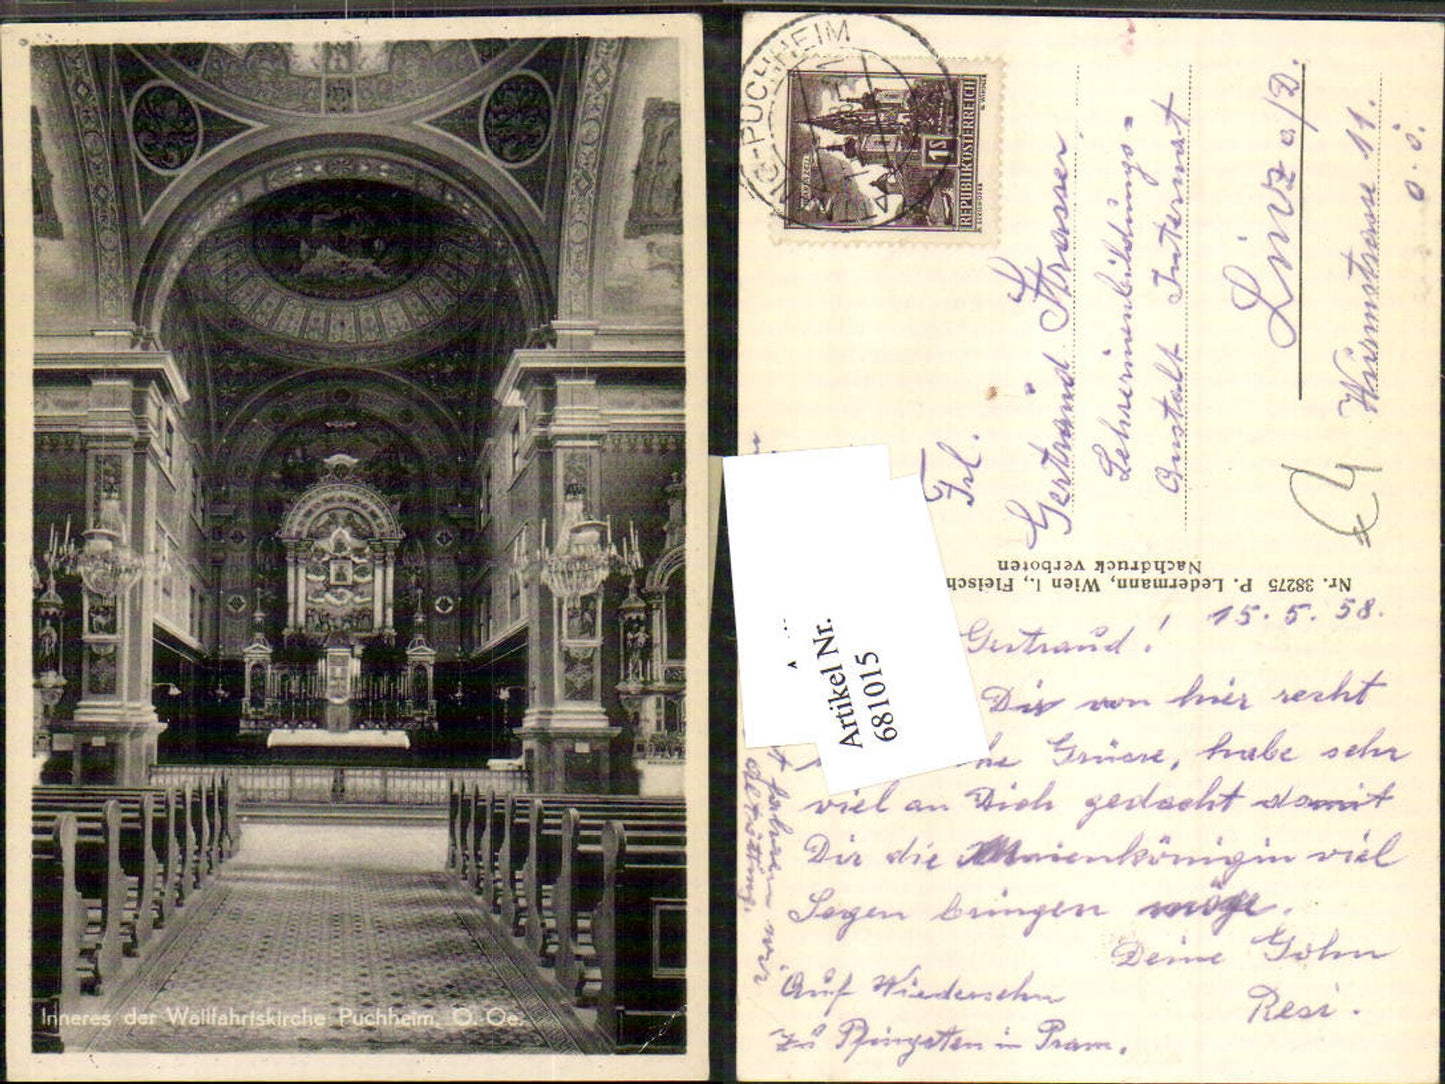 Inneres der Wallfahrtskirche Puchheim, O.-Oe.
PUCHHEIM
REPUBLIK ÖSTERREICH
1S
Frl.
Gertraud Strasser
Lehrerinenbildungs=
Anstalt Internat
Linz a/D.
Wurmstrasse 11.
O.Ö.
Nr. 38275 P. Ledermann, Wien I., Fleisch
Nachdruck verboten
Artikel Nr.
681015
15. 5. 58.
Gertraud!
Dir von hier recht
he Grüsse, habe sehr
viel an Dich gedacht damit
Dir die Maienkönigin viel
Segen bringen möge.
Deine
Resi.
Auf Wiedersehn
zu Pfingsten in Pram.
fahren wir
Altötting.